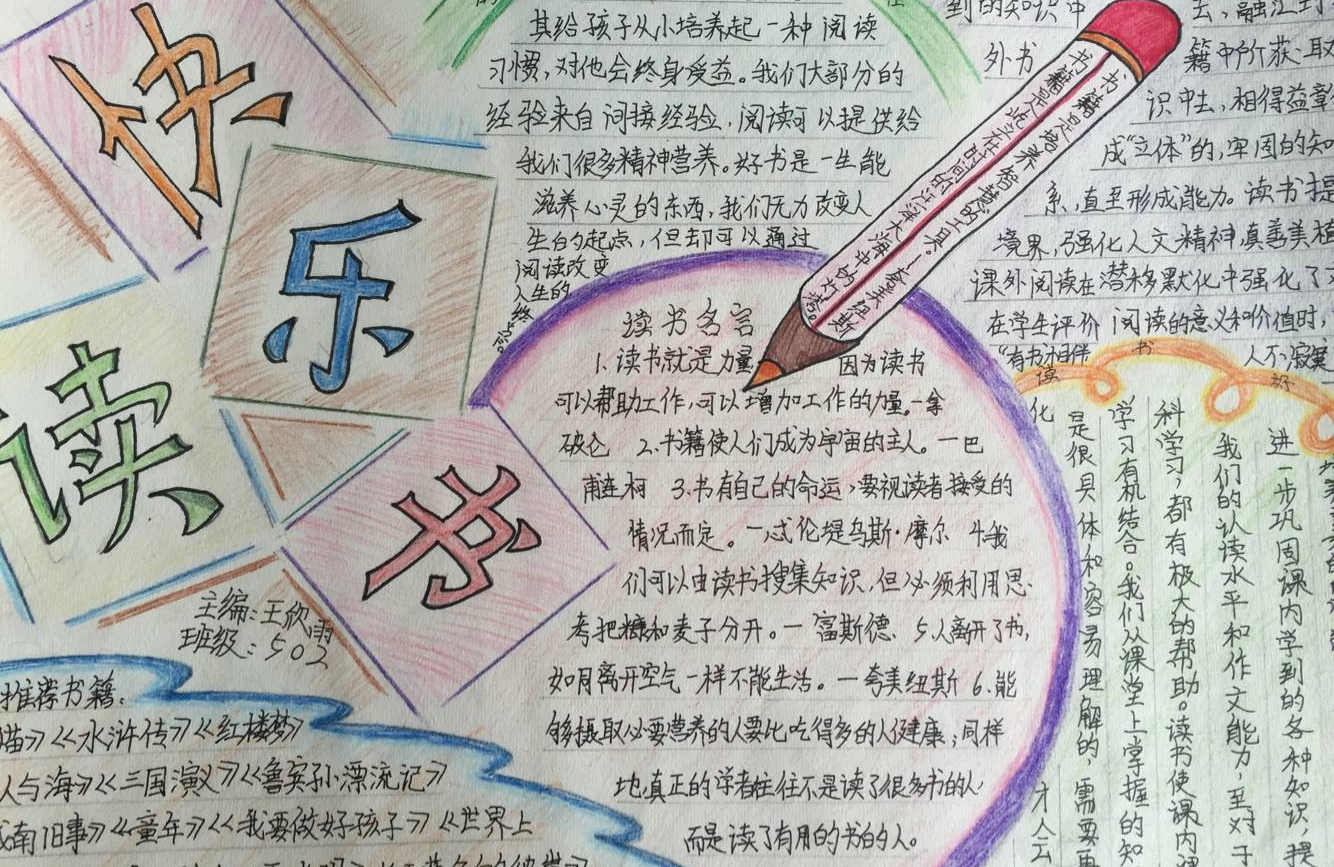 快
乐
读
书
主编:王欣雨
班级:502
其给孩子从小培养起一种阅读
习惯,对他会终身受益。我们大部分的
经验来自间接经验,阅读可以提供给
我们很多精神营养。好书是一生能
滋养心灵的东西,我们无力改变人
生的起点,但却可以通过
阅读改变
人生的
终点。
书籍是培养智慧的工具。一夸美纽斯
书籍是屹立在时间的汪洋大海中的灯塔。
到的知识中
外书
去,融汇到
籍中所获取
识中去,相得益彰
成“立体”的,牢固的知
系,直至形成能力。读书提
境界,强化人文精神,真善美植
课外阅读在潜移默化中强化了
在学生评价阅读的意义和价值时,
“有书相伴
人不寂寞
读
书
好
读书名言
1.读书就是力量
因为读书
可以帮助工作,可以增加工作的力量。一拿
破仑 2.书籍使人们成为宇宙的主人。一巴
甫连柯 3.书有自己的命运,要视读者接受的
情况而定。一忒伦提乌斯·摩尔 4.我
们可以由读书搜集知识,但必须利用思
考把糠和麦子分开。一富斯德. 5人离开了书,
如同离开空气一样不能生活。一夸美纽斯 6.能
够摄取必要营养的人要比吃得多的人健康;同样
地,真正的学者往往不是读了很多书的人
而是读了有用的书的人。
推荐书籍:
猫》《水浒传》《红楼梦》
人与海》《三国演义》《鲁宾孙漂流记》
城南旧事》《童年》《我要做好孩子》《世界上
进一步巩固课内学到的各种知识,提
我们的认读水平和作文能力,至对于
科学习,都有极大的帮助。读书使课内
学习有机结合。我们从课堂上掌握的知
是很具体和容易理解的,需要再
化
才人云